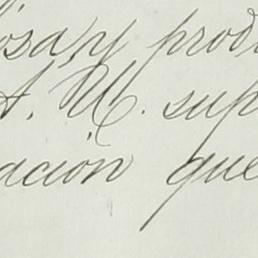 osa, y prod
A. M. sup
ación que